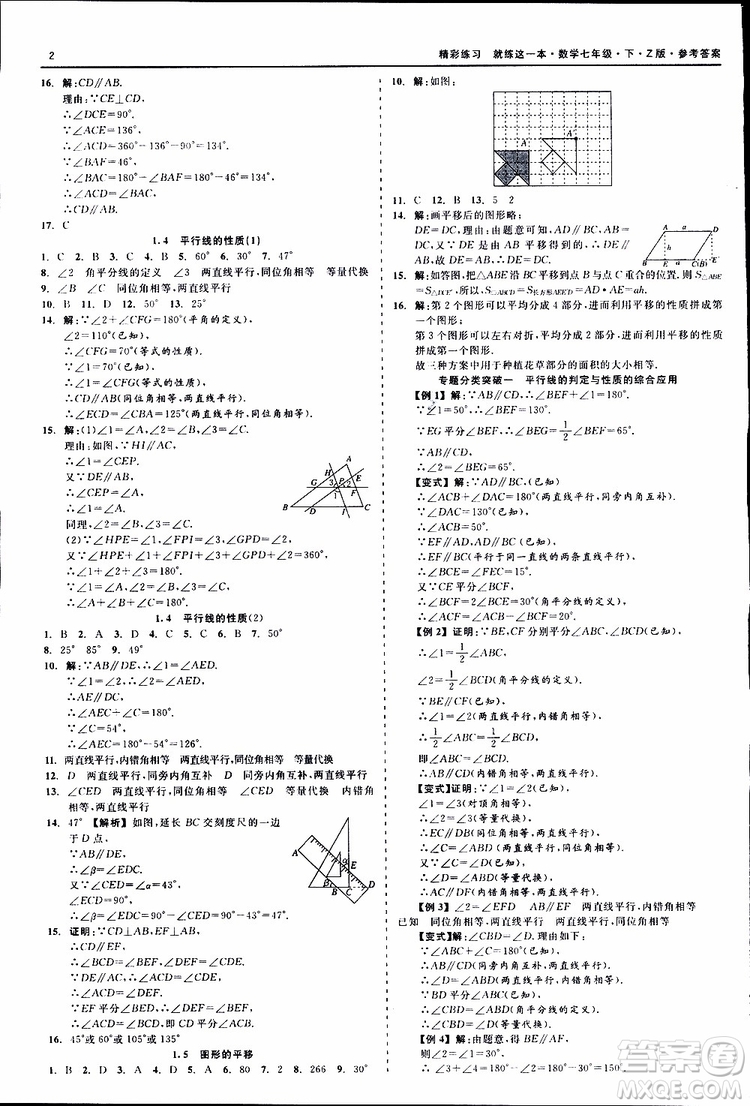 2
精彩练习 就练这一本·数学七年级·下·Z版·参考答案
16. 解:CD∥AB.
理由:∵CE⊥CD,
∴∠DCE=90°.
∵∠ACE=136°,
∴∠ACD=360°-136°-90°=134°.
∵∠BAF=46°,
∴∠BAC=180°-46°=134°,
∴∠ACD=∠BAC,
∴CD∥AB.
17. C
1.4 平行线的性质(1)
1. C 2. B 3. C 4. B 5. 60° 6. 30° 7. 47°
8. ∠2 角平分线的定义 ∠3 两直线平行,同位角相等 等量代换
9. ∠B ∠C 同位角相等,两直线平行
10. B 11. D 12. 50° 13. 25°
14. 解:∵∠2+∠CFG=180°(平角的定义),
∴∠CFG=70°(等式的性质).
∵∠1=70°(已知),
∴∠1=∠CFG(等量代换),
∴CD∥AB(同位角相等,两直线平行),
∴∠ECD=∠CBA=125°(两直线平行,同位角相等).
15. 解:(1)∠A=∠1,∠B=∠2.
理由:如图,∵HI∥AC,
∴∠1=∠CEP.
又∵DE∥AB,
∴∠A=∠CEP,
∴∠A=∠1.
同理,∠2=∠B.
(2)∵∠HPE=∠1,∠FPI=∠3,∠GPD=∠2,
又∵∠HPE+∠1+∠FPI+∠3+∠GPD+∠2=360°,
∴∠1+∠2+∠3=180°.
∵∠1=∠A,∠2=∠B,∠3=∠C,
∴∠A+∠B+∠C=180°.
1.4 平行线的性质(2)
1. B 2. A 3. D 4. B 5. B 6. B 7. 52°
8. 25° 85° 9. 49°
10. 解:∵AB∥DE,∴∠1=∠AED.
∵∠1=∠2,∴∠2=∠AED,
∴AE∥DC,
∴∠AEC+∠C=180°.
∵∠C=54°,
∴∠AEC=180°-54°=126°.
11. 两直线平行,内错角相等 两直线平行,同位角相等 等量代换
12. D 两直线平行,同旁内角互补 D 同旁内角互补,两直线平行
13. ∠CED 两直线平行,同位角相等 ∠CED 等量代换 内错角
相等,两直线平行
14. 47° 【解析】如图,延长BC交刻度尺的一边
于D点,
∵AB∥DE,
∴∠β=∠EDC.
又∵∠CED=∠α=43°,
∠ECD=90°,
∴∠β=∠EDC=90°-∠CED=90°-43°=47°.
15. 证明:∵CD⊥AB,EF⊥AB,
∴CD∥EF,
∴∠BEF=∠BCD.
又∵∠ACB+∠CED=180°,
∴BC∥DE,
∴∠BCD=∠CDE,
∴∠BEF=∠CDE.
又∵CD∥EF,
∴∠CDE=∠DEF,
∴∠BEF=∠DEF.
∵EF平分∠BED,
∴∠BEF=∠DEF.
16. 45°或60°或105°或135°
1.5 图形的平移
1. B 2. D 3. D 4. A 5. C 6. A 7. 80 7. 2 8. 266 9. 30°
10. 解:如图:
11. C 12. B 13. 5 2
14. 解:画平移后的图形略;
DE=DC,DE∥DC.
理由:由题意可知,AD=BE,AD∥
BE,AB=DC,AB∥DC,AB=DE,
AB∥DE,故DE=DC,DE∥DC.
15. 解:如答图,把△ABE沿平移到点B与点C重合的位置,则S△ABE
=S△DCE',∴S▱ABCD=S长方形AEE'D=AD·AE=ah.
16. 解:第2个图形可以平均分成4部分,进而利用平移的性质拼成第
一个图形;
第3个图形可以左右对折,平均分成2部分,进而利用平移的性质
拼成第一个图形.
故三种方案中用于种植花草部分的面积的大小相等.
专题分类突破一 平行线的判定与性质的综合应用
【例1】解:∵AB∥CD,∴∠BEF+∠1=180°.
∵∠1=50°,∴∠BEF=130°.
∵EG平分∠BEF,∴∠BEG=1/2∠BEF=65°.
∵AB∥CD,
∴∠2=∠BEG=65°.
【变式】解:∵AD∥BC(已知),
∴∠ACB+∠DAC=180°(两直线平行,同旁内角互补).
又∵∠DAC=130°(已知),
∴∠ACB=50°.
∵EF∥AD,AD∥BC(已知),
∴EF∥BC(平行于同一条直线的两条直线平行),
∴∠BCE=∠FEC=15°.
又∵CE平分∠BCF,
∴∠BCF=2∠BCE=30°(角平分线的定义),
∴∠ACF=∠ACB-∠BCF=20°(等式性质).
【例2】证明:∵BE,CF分别平分∠ABC,∠BCD(已知),
∴∠1=1/2∠ABC,
∠2=1/2∠BCD(角平分线的定义).
∵BE∥CF(已知),
∴∠1=∠2(两直线平行,内错角相等),
∴1/2∠ABC=1/2∠BCD(等量代换),
即∠ABC=∠BCD,
∴AB∥CD(内错角相等,两直线平行).
【变式】证明:∵∠1=∠2(已知),
∠1=∠3(对顶角相等),
∴∠2=∠3(等量代换),
∴EC∥DB(同位角相等,两直线平行),
∴∠C=∠ABD(两直线平行,同位角相等).
又∵∠C=∠D(已知),
∴∠D=∠ABD(等量代换),
∴AC∥DF(内错角相等,两直线平行),
∴∠A=∠F(两直线平行,内错角相等).
【例3】∠2=∠EFD ∠AEF=∠EFD 两直线平行,内错角相等
已知 同位角相等,两直线平行 两直线平行,同位角相等
【变式】解:∠CBD=∠D.理由如下:
∵∠1+∠2=180°,∠1+∠DBE=180°,
∴∠2=∠DBE,
∴CD∥EB(同位角相等,两直线平行),
∴∠ABD=∠D(两直线平行,内错角相等).
∵BD平分∠ABC,
∴∠CBD=∠ABD,
∴∠CBD=∠D(等量代换).
【例4】解:由题意,得BE∥AF,
则∠1=∠2(两直线平行,同位角相等).
又∵∠2+∠3=180°,∠3=30°,
∴∠1=∠2=180°-30°=150°.
答案圈